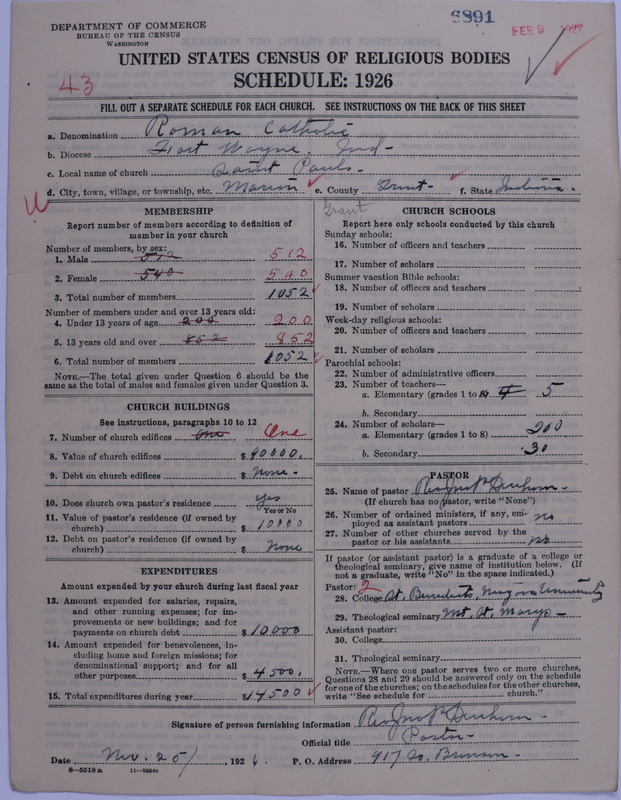 DEPARTMENT OF COMMERCE
BUREAU OF THE CENSUS
WASHINGTON
8891
FEB 9 1927
UNITED STATES CENSUS OF RELIGIOUS BODIES
SCHEDULE: 1926
43
FILL OUT A SEPARATE SCHEDULE FOR EACH CHURCH. SEE INSTRUCTIONS ON THE BACK OF THIS SHEET
a. Denomination Roman Catholic
b. Diocese Fort Wayne, Ind-
c. Local name of church Saint Pauls-
d. City, town, village, or township, etc. Marion e. County Grant- f. State Indiana.
Grant
MEMBERSHIP
Report number of members according to definition of member in your church
Number of members, by sex:
1. Male 512 512
2. Female 540 540
3. Total number of members 1052
Number of members under and over 13 years old:
4. Under 13 years of age 200 200
5. 13 years old and over 852 852
6. Total number of members 1052
NOTE.—The total given under Question 6 should be the same as the total of males and females given under Question 3.
CHURCH BUILDINGS
See instructions, paragraphs 10 to 12
7. Number of church edifices One One
8. Value of church edifices $90000.
9. Debt on church edifices $None-
10. Does church own pastor's residence yes
Yes or No
11. Value of pastor's residence (if owned by church) $10000
12. Debt on pastor's residence (if owned by church) $None
EXPENDITURES
Amount expended by your church during last fiscal year
13. Amount expended for salaries, repairs, and other running expenses; for improvements or new buildings; and for payments on church debt $10000
14. Amount expended for benevolences, including home and foreign missions; for denominational support; and for all other purposes $4500.
15. Total expenditures during year $14500
CHURCH SCHOOLS
Report here only schools conducted by this church
Sunday schools:
16. Number of officers and teachers
17. Number of scholars
Summer vacation Bible schools:
18. Number of officers and teachers
19. Number of scholars
Week-day religious schools:
20. Number of officers and teachers
21. Number of scholars
Parochial schools:
22. Number of administrative officers
23. Number of teachers—
a. Elementary (grades 1 to 8) 4 5
b. Secondary
24. Number of scholars—
a. Elementary (grades 1 to 8) 200
b. Secondary 30
PASTOR
25. Name of pastor Rev Jno P
(If church has no pastor, write "None")
26. Number of ordained ministers, if any, employed as assistant pastors no
27. Number of other churches served by the pastor or his assistants no
If pastor (or assistant pastor) is a graduate of a college or theological seminary, give name of institution below. (If not a graduate, write "No" in the space indicated.)
Pastor: 2
28. College St. Benedicts, Niagara University
29. Theological seminary Mt. St. Marys-
Assistant pastor:
30. College
31. Theological seminary
NOTE.—Where one pastor serves two or more churches, Questions 28 and 29 should be answered only on the schedule for one of the churches; on the schedules for the other churches, write "See schedule for church."
Signature of person furnishing information Rev Jno P
Official title Pastor-
Date Nov. 25/, 1926. P. O. Address 917 So. Branson-
8-5518a 11-9054a